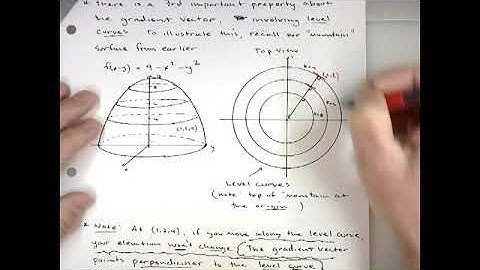 * There is a 3rd important property about
the gradient vector, involving level
curves. To illustrate this, recall our "mountain"
surface from earlier
Top View
f(x,y) = 9 - x² - y²
y
x
Level curves
(note: top of "mountain" at
the origin)
* Note: At (1,2,4), if you move along the level curve,
your elevation won't change. The gradient vector
points perpendicular to the level curve